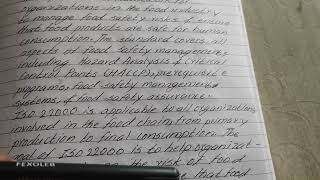 organizations in the food industry
to manage food safety risks & ensure
that food products are safe for human
consumption. The standard covers all
aspects of food safety management
including Hazard Analysis & Critical
Control Points (HACCP), prerequisite
programs, food safety management
systems, & food safety assurance.
ISO 22000 is applicable to all organizations
involved in the food chain, from primary
production to final consumption. The
goal of ISO 22000 is to help organizat-
the risk of food
that food
FEXOLEB